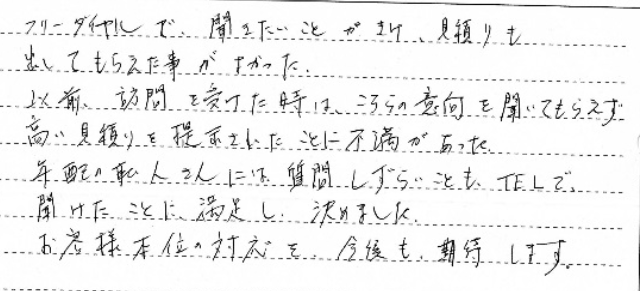 フリーダイヤルで、聞きたいことがきけ、見積りも
出してもらえた事がよかった。
以前、訪問を受けた時は、こちらの意向を聞いてもらえず
高い見積りを提示されたことに不満があった。
年配の職人さんには質問しずらいことも、TELで、
聞けたことに満足し、決めました。
お客様本位の対応を、今後も、期待します。